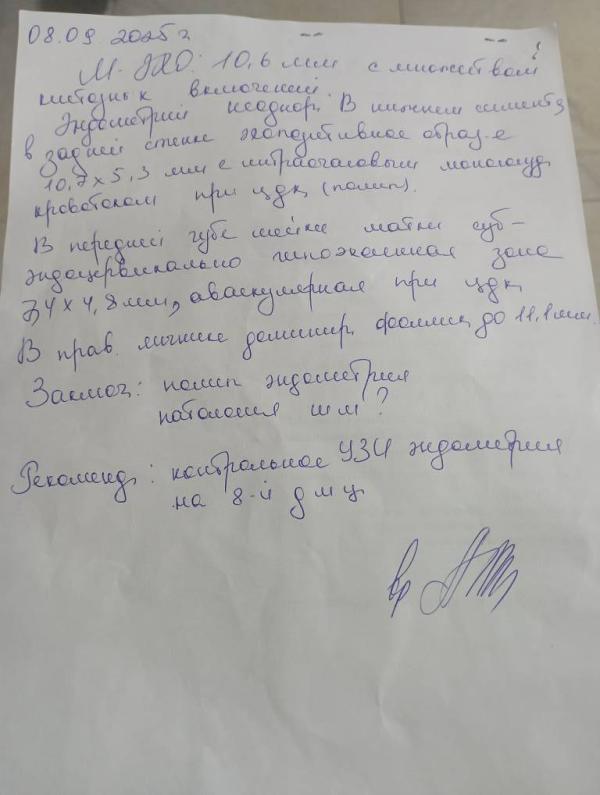 08.09.2025 г
М-ЭХО: 10,6 мм с множеством
кистозных включений.
Эндометрий неоднор. В нижнем сегменте
в задней стенке эхопозитивное образ-е
10,7 х 5,3 мм с интраочаговым моносуд.
кровотоком при ЦДК (полип).
В передней губе шейки матки суб-
эндоцервикально гипоэхогенная зона
7,4 х 4,8 мм, аваскулярная при ЦДК
В прав. яичнике доминир. фолликул до 11,1 мм.
Заключ: полип эндометрия
патология шм?
Рекоменд: контрольное УЗИ эндометрия
на 8-й д м ц
вр